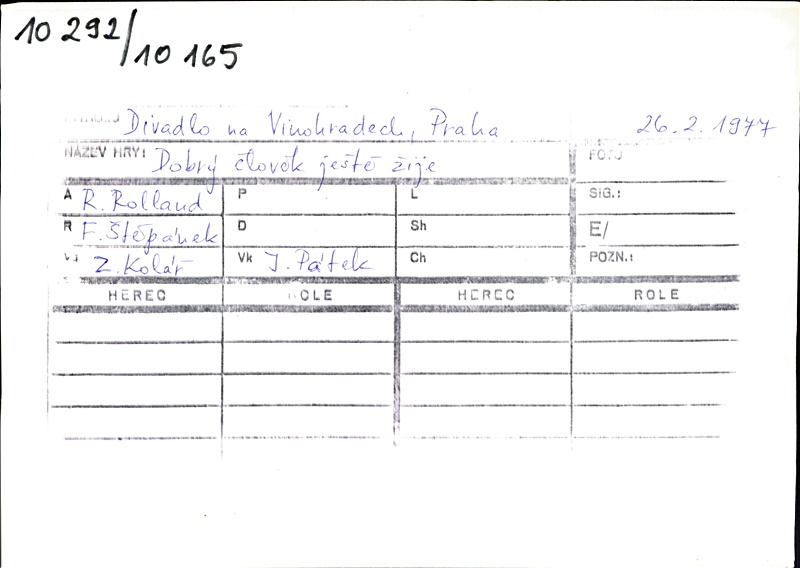 10 292/10 165
Divadlo na Vinohradech, Praha 26.2.1977
NÁZEV HRY: Dobrý člověk ještě žije FOTO
A R. Rolland P L SIG.:
R F. Štěpánek D Sh E/
Z. Kolář Vk J. Pátek Ch POZN.:
HEREC ROLE HEREC ROLE